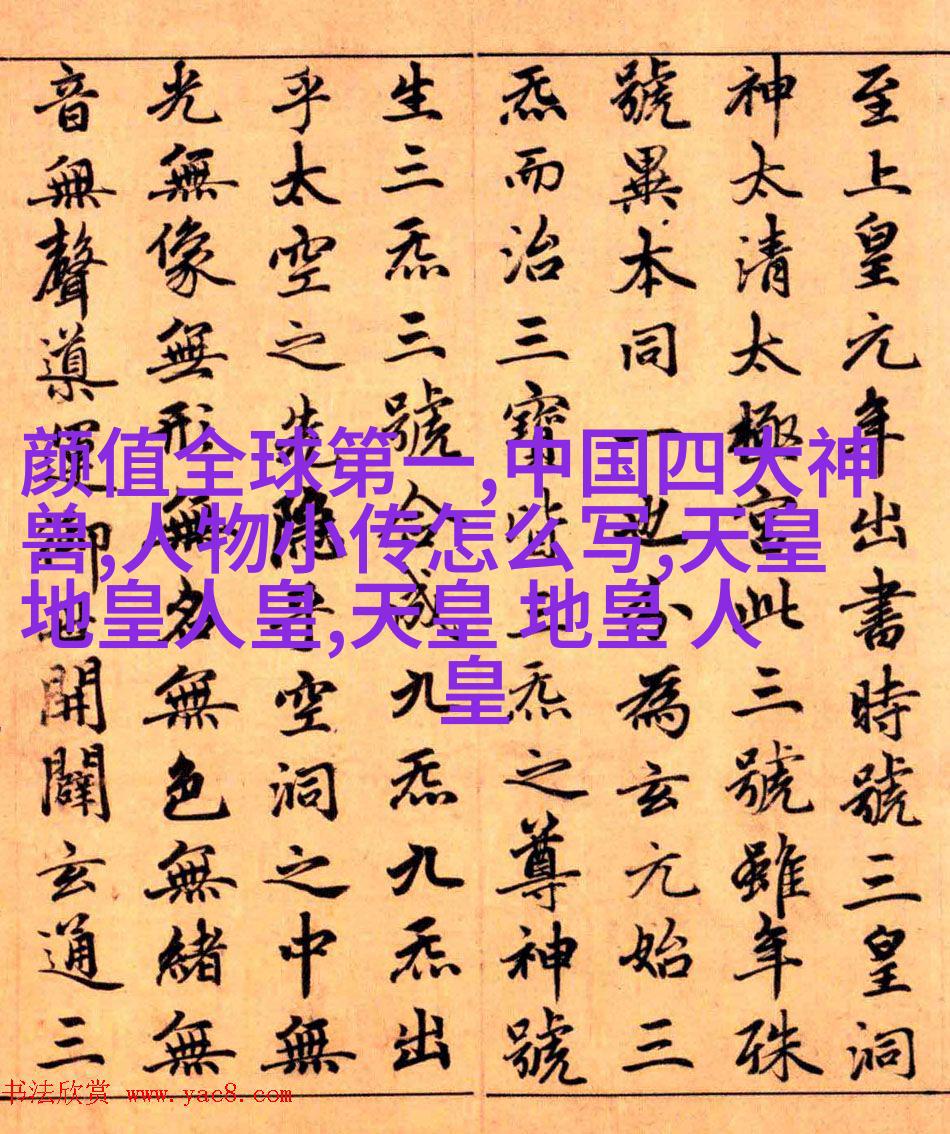 至上皇元年出書時號三皇洞
神太清太極宮此三號雖年殊
號異本同一也分為玄元始三
炁而治三寶皆三炁之尊神號
生三炁三號合成九炁九炁出
乎太空之先隱乎空洞之中無
光無像無形無名無色無緒無
音無聲導運御世開闢玄通三
颜值全球第一,中国四大神
兽,人物小传怎么写,天皇
地皇人皇,天皇 地皇 人
皇
书法欣赏 www.yac8.com